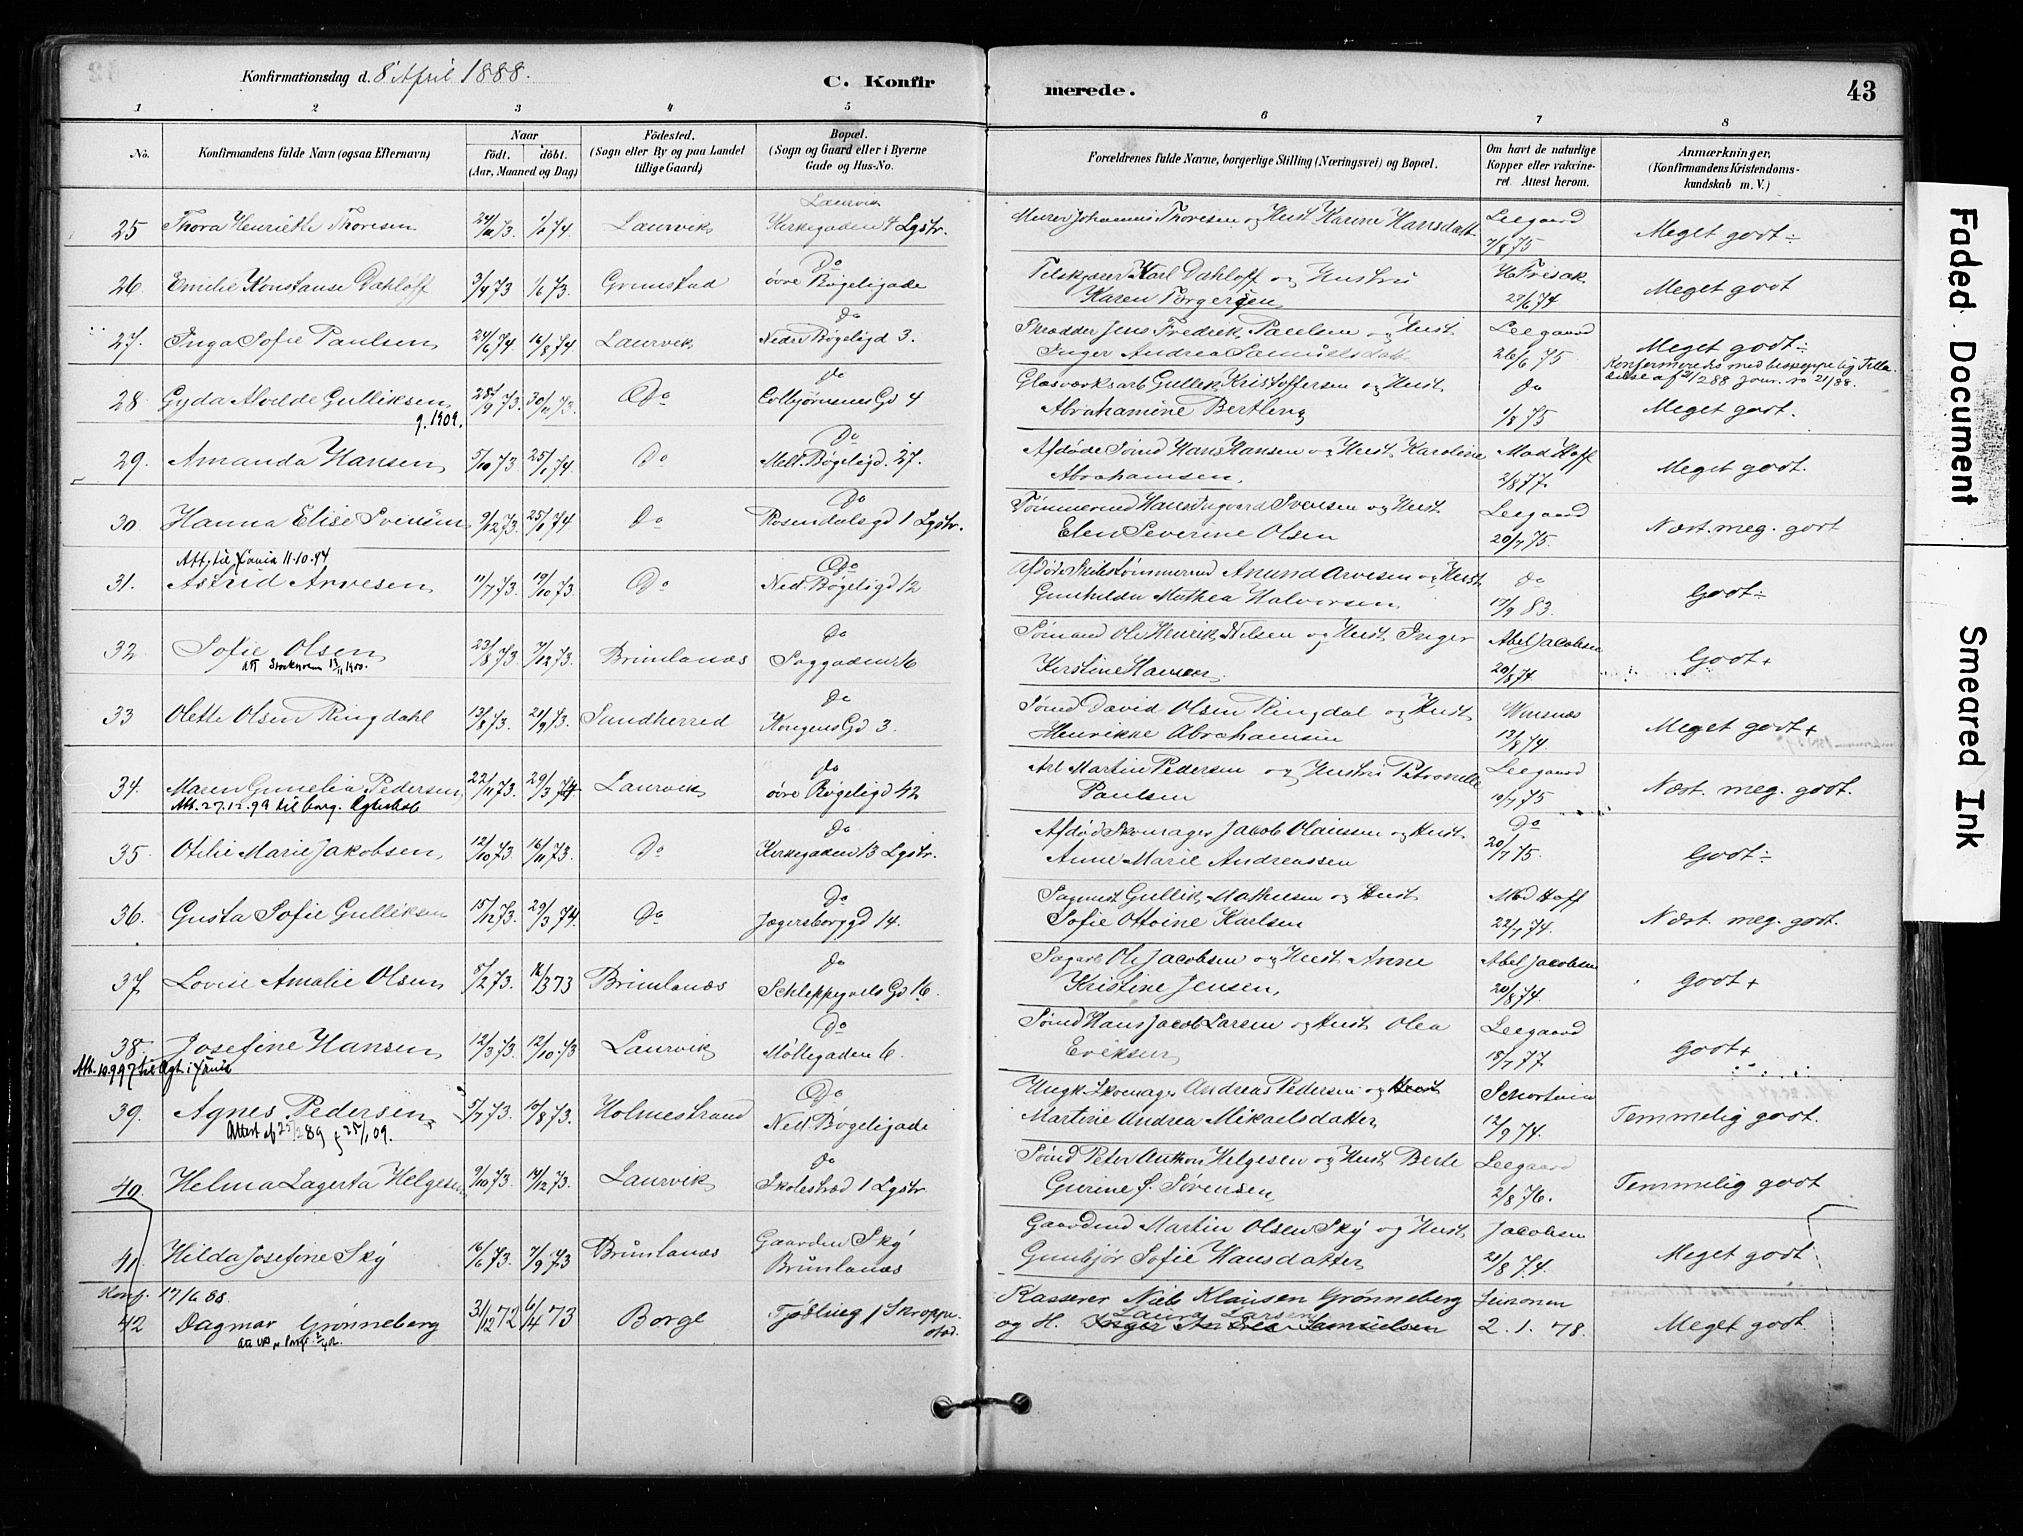 Konfirmationsdag d. 8' April 1888.
C. Konfir
merede.
43
1 2 3 4 5 6 7 8
No.
Konfirmandens fulde Navn (ogsaa Efternavn)
Naar
födt. döbt.
(Aar, Maaned og Dag)
Födested.
(Sogn eller By og paa Landet
tillige Gaard)
Bopæl.
(Sogn og Gaard eller i Byerne
Gade og Hus-No.
Forældrenes fulde Navne, borgerlige Stilling (Næringsvei) og Bopæl.
Om havt de naturlige
Kopper eller vakcine-
ret. Attest herom.
Anmærkninger,
(Konfirmandens Kristendoms-
kundskab m. V.)
Laurvik
25 Thora Henriette Thoresen Laurvik Kirkegaden 4 Lgstr. Murer Johannes Thoresen og Hust Karine Hansdatt Leegaard Meget godt ÷
7/8 75
Do
26 Emilie Konstanse Dahloff 3/4 73 1/6 73. Grimstad övre Bøgeligade Karl Dahloff og Hustru Meget godt
Karen Torgersen 27/6 74
do
27. Inga Sofie Paulsen 24/6 74 16/8 74. Laurvik Nedre Bøgeligd 3. Skrædder Jens Fredrik Paulsen og Hust. Leegaard Meget godt ÷
Inger Andrea Samuelsdatt 26/6 75
Konfirmeredes med bispeppelig Tilla
delse af 21/2 88 Jour. no 21/88.
do
28. Gyda Alvilde Gulliksen 28/9 73. 30/11 73. Do Colbjørnsens Gd 4 Glasværksarb Gullik Kristoffersen og Hust do
g. 1909. Abrahamine Bertling 1/8 75 Meget godt.
Do
29. Amanda Hansen 5/10 73 25/1 74. Do Mell. Bøgeligd. 27. Afdøde Sømd Hans Hansen og Hust. Karoline Mad Hoff Meget godt.
Abrahamsen. 2/8 77.
Do
30. Hanna Elise Svensen 9/12 73. 25/1 74 Do Rosendalsgd 1 Lgstr. Tømmermd Hans Svensen og Hust Leegaard Næst. meg. godt
Elen Severine Olsen 20/7 75.
Att. til Xania 11.10.94 Do
31. Astrid Arvesen 11/7 73. 19/10 73. Do Ned. Bøgeligd 12 Afdøde Skibstømmermd Anund Arvesen og Hust do Godt ÷
Gunhilda Mathea Halvorsen 17/9 83.
Do
32. Sofie Olsen 23/8 73 7/12 73. Brunlanæs 16 Sømand Ole Henrik Nilsen og Hust Inger Abel Jacobsen Godt +
1900. Kirstine Hansen. 20/8 74
Do
33 Olette Olsen Ringdahl 13/8 73. 21/9 73. Sandherred Kongens Gd 3. Sømd David Olsen Ringdal og Hust Meget godt +
Henrikke Abrahamsen 13/8 74
do
34. Maren Pedersen 22/11 73. 29/3 74 Laurvik övre Bøgeligd 42 Arb Martin Pedersen og Hustru Petronelle Leegaard Næst. meg. godt.
Att. 27.12.99 til borg. Paulsen 10/7 75
Do Do
35. Otilie Marie Jakobsen 12/10 73 16/11 73. Do Kirkegaden 13 Lgstr. Afdød Skomager Jacob Olaussen og Hust 20/7 75. Godt ÷
Anne Marie Andreassen
Do
36. Gusta Sofie Gulliksen 15/12 73. 29/3 74 Do Jægersborggd 14. Gullik Mathisen og Hust Mad Hoff Næst. meg. godt.
Sofie Ottoine Karlsen 22/7 74.
do
37. Lovise Amalie Olsen 5/2 73. 16/3 73 Brunlanæs Schleppegrels Gd 16. Sagarb Ole Jacobsen og Hust Anne Abel Jacobsen Godt +
Kristine Jensen. 20/8 74.
Do
38. Josefine Hansen 12/3 73. 12/10 73 Laurvik Möllegaden 6 Sømd Hans Jacob Larsen og Hust Olea Leegaard Godt +
Att. 10.9 97 til i Xania Eriksen 18/7 77.
Do
39. Agnes Pedersen 5/7 73. 10/8 73. Holmestrand Ned. Bøgeligade Ungk Skomager Andreas Pedersen og Temmelig godt.
Attest af 25/2 89 25/1 09. Martine Andrea Mikaelsdatter 12/9 74.
do
40. Helma Lagerta Helgesen 9/10 73. 14/12 73. Laurvik Skolestræd 1 Lgstr. Sømd Peter Anthon Helgesen og Hust Berte Leegaard Temmelig godt
Gurine S. Sørensen 2/8 76.
41. Hilda Josefine Skÿ 16/6 73. 7/9 73 Brunlanæs Gaarden Skÿ Gaardmd Martin Olsen Skÿ og Hust. Jacobsen Meget godt
Brunlanæs Gunbjør Sofie Hansdatter 21/8 74.
Konf. 17/6 88.
42 Dagmar Grønneberg 31/12 72 6/4 73 Borge Tjölling Kasserer Niels Klausen Grønneberg
Laura Larsen
og H. Inger Andrea Samuelsen 2. 1. 78. Meget godt.
Faded Document
Smeared Ink